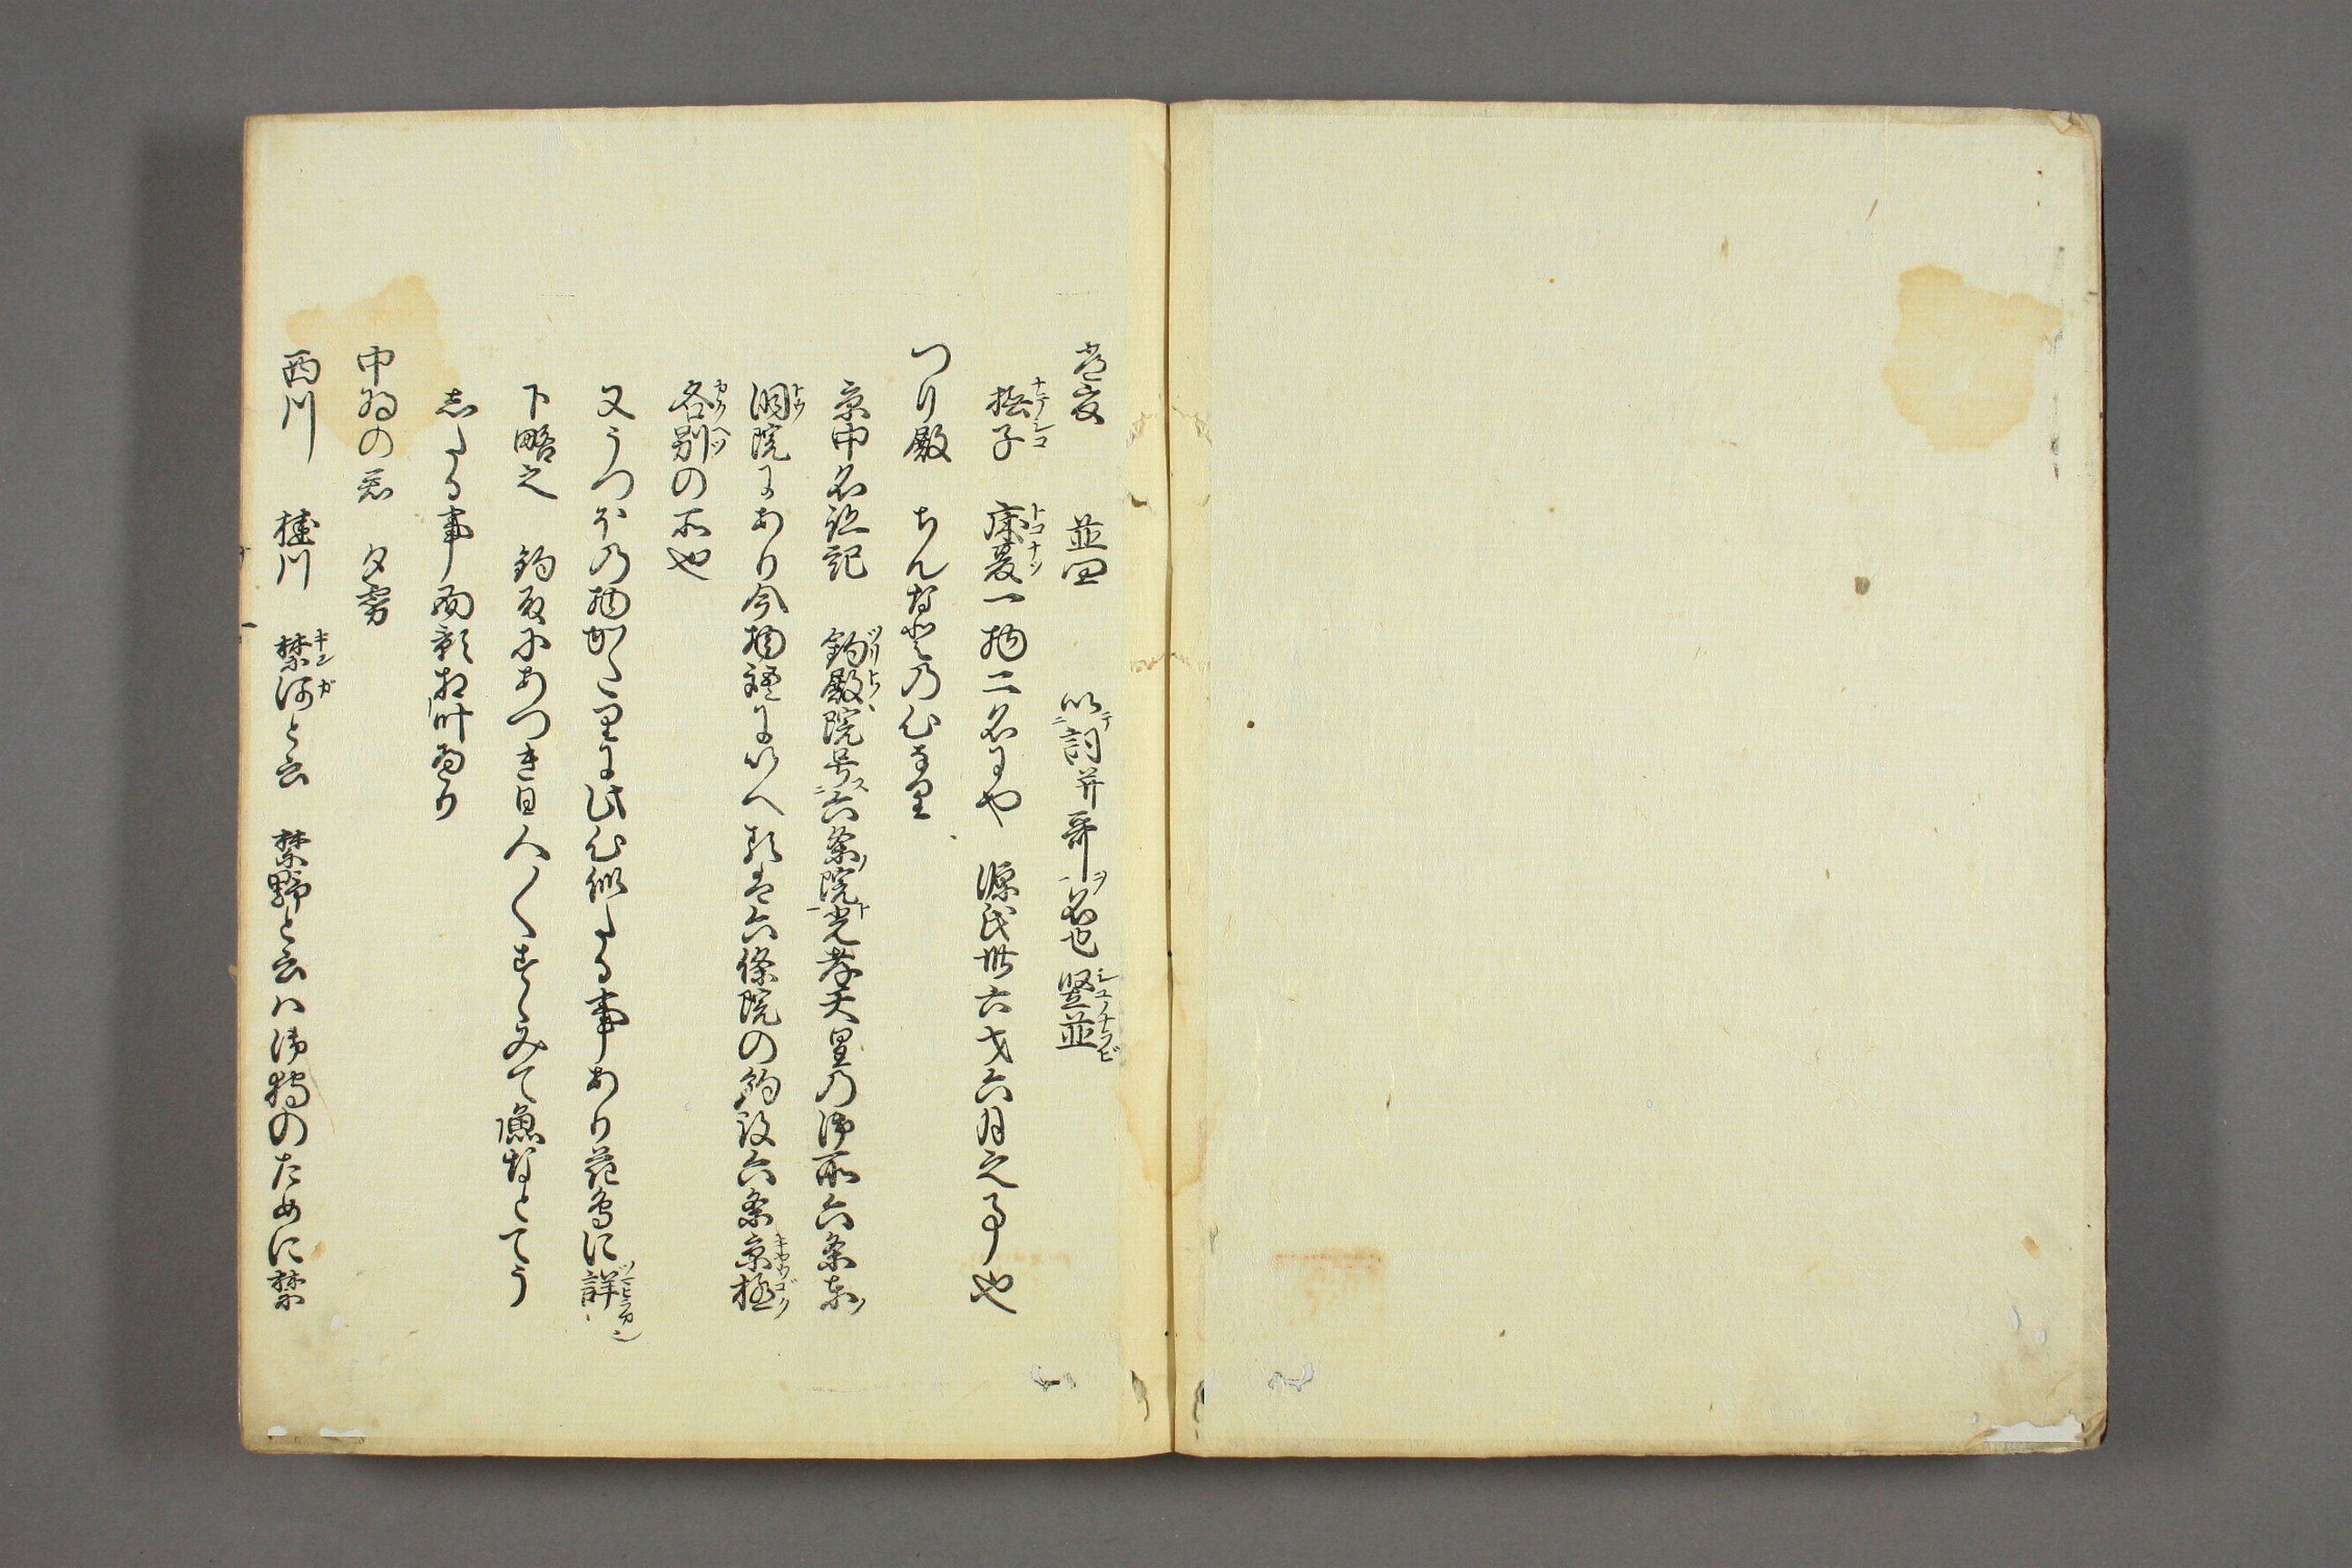 常夏　並四　以詞并哥名也　竪並
撫子　床夏一物二名にや　源氏卅六才六月之事也
つり殿　ちんなどの心なり
京中名跡記　釣殿院号六条院光孝天皇の御所六条東
洞院にあり今物語にいへるは六條院の釣殿六条京極
各別の所也
又うつほの物がたりに此心似たる事あり花鳥に詳
下略之　釣殿にあつき日人〱すゝみて漁などてう
したる事面影相叶へり
中将の君　夕霧
西川　桂川　禁河と云　禁野と云ハ御狩のために禁